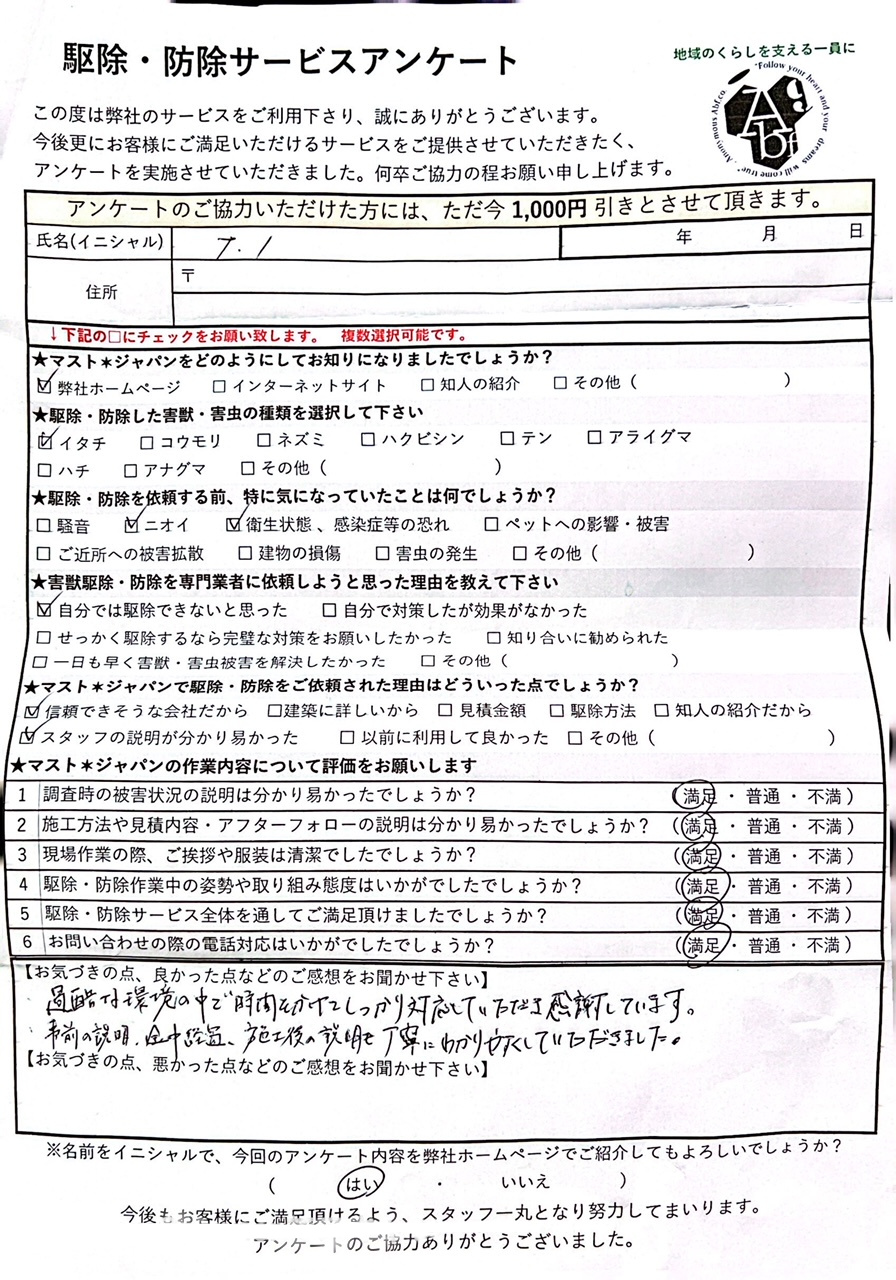 駆除・防除サービスアンケート
地域のくらしを支える一員に
"Follow your heart and your dreams will come true". Anonymous Abf.co.
A9bf
この度は弊社のサービスをご利用下さり、誠にありがとうございます。
今後更にお客様にご満足いただけるサービスをご提供させていただきたく、
アンケートを実施させていただきました。何卒ご協力の程お願い申し上げます。
アンケートのご協力いただけた方には、ただ今 1,000円 引きとさせて頂きます。
氏名(イニシャル) T. I 年 月 日
住所 〒
↓下記の□にチェックをお願い致します。 複数選択可能です。
★マスト＊ジャパンをどのようにしてお知りになりましたでしょうか？
☑弊社ホームページ □インターネットサイト □知人の紹介 □その他（ ）
★駆除・防除した害獣・害虫の種類を選択して下さい
☑イタチ □コウモリ □ネズミ □ハクビシン □テン □アライグマ
□ハチ □アナグマ □その他（ ）
★駆除・防除を依頼する前、特に気になっていたことは何でしょうか？
□騒音 ☑ニオイ ☑衛生状態、感染症等の恐れ □ペットへの影響・被害
□ご近所への被害拡散 □建物の損傷 □害虫の発生 □その他（ ）
★害獣駆除・防除を専門業者に依頼しようと思った理由を教えて下さい
☑自分では駆除できないと思った □自分で対策したが効果がなかった
□せっかく駆除するなら完璧な対策をお願いしたかった □知り合いに勧められた
□一日も早く害獣・害虫被害を解決したかった □その他（ ）
★マスト＊ジャパンで駆除・防除をご依頼された理由はどういった点でしょうか？
☑信頼できそうな会社だから □建築に詳しいから □見積金額 □駆除方法 □知人の紹介だから
☑スタッフの説明が分かり易かった □以前に利用して良かった □その他（ ）
★マスト＊ジャパンの作業内容について評価をお願いします
1 調査時の被害状況の説明は分かり易かったでしょうか？ （満足・普通・不満）
2 施工方法や見積内容・アフターフォローの説明は分かり易かったでしょうか？ （満足・普通・不満）
3 現場作業の際、ご挨拶や服装は清潔でしたでしょうか？ （満足・普通・不満）
4 駆除・防除作業中の姿勢や取り組み態度はいかがでしたでしょうか？ （満足・普通・不満）
5 駆除・防除サービス全体を通してご満足頂けましたでしょうか？ （満足・普通・不満）
6 お問い合わせの際の電話対応はいかがでしたでしょうか？ （満足・普通・不満）
【お気づきの点、良かった点などのご感想をお聞かせ下さい】
過酷な環境の中で時間をかけてしっかり対応していただき感謝しています。
事前の説明、途中経過、施工後の説明も丁寧にわかりやすくしていただきました。
【お気づきの点、悪かった点などのご感想をお聞かせ下さい】
※名前をイニシャルで、今回のアンケート内容を弊社ホームページでご紹介してもよろしいでしょうか？
（ はい ・ いいえ ）
今後もお客様にご満足頂けるよう、スタッフ一丸となり努力してまいります。
アンケートのご協力ありがとうございました。